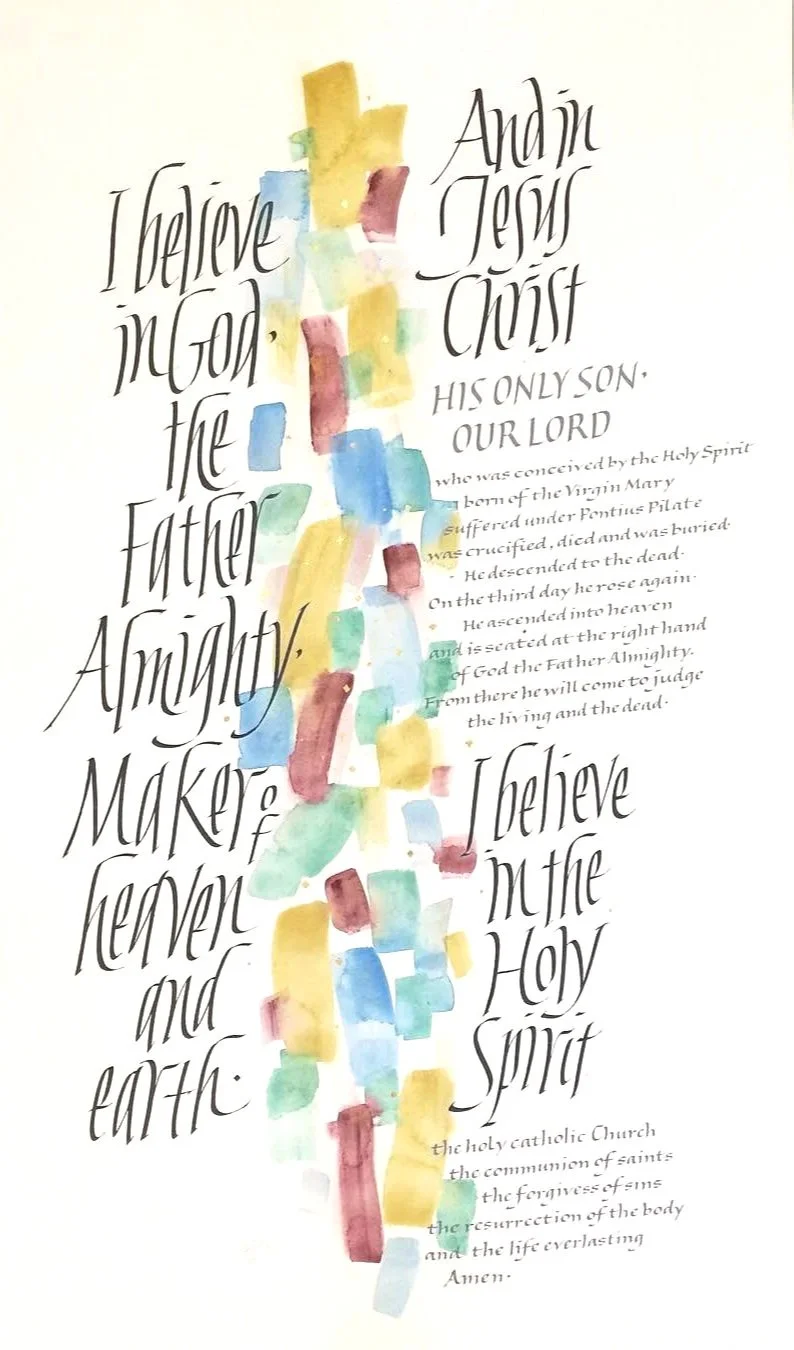 I believe
in God,
the
Father
Almighty,
Maker of
heaven
and
earth.
And in
Jesus
Christ
HIS ONLY SON.
OUR LORD
who was conceived by the Holy Spirit
born of the Virgin Mary
suffered under Pontius Pilate
was crucified, died and was buried.
He descended to the dead.
On the third day he rose again.
He ascended into heaven
and is seated at the right hand
of God the Father Almighty.
From there he will come to judge
the living and the dead.
I believe
in the
Holy
Spirit
the holy catholic Church
the communion of saints
the forgivess of sins
the resurrection of the body
and the life everlasting
Amen.